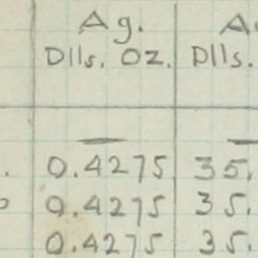 Ag. A
Dlls. Oz. Dlls.
— —
0.4275 35.
0.4275 35.
0.4275 35.